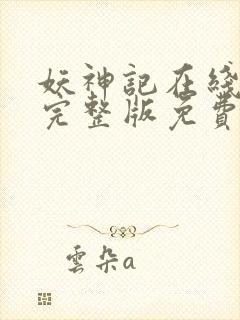 妖神記在綫
完整版免費
雲朵a